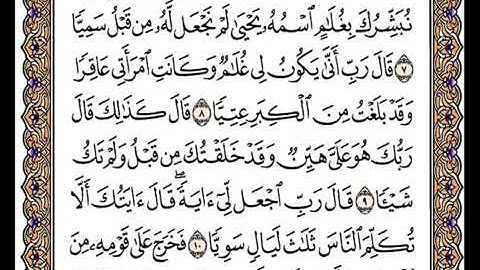 نُبَشِّرُكَ بِغُلَٰمٍ ٱسْمُهُۥ يَحْيَىٰ لَمْ نَجْعَل لَّهُۥ مِن قَبْلُ سَمِيًّا
٧ قَالَ رَبِّ أَنَّىٰ يَكُونُ لِى غُلَٰمٌ وَكَانَتِ ٱمْرَأَتِى عَاقِرًا
وَقَدْ بَلَغْتُ مِنَ ٱلْكِبَرِ عِتِيًّا ٨ قَالَ كَذَٰلِكَ قَالَ
رَبُّكَ هُوَ عَلَىَّ هَيِّنٌ وَقَدْ خَلَقْتُكَ مِن قَبْلُ وَلَمْ تَكُ
شَيْـًٔا ٩ قَالَ رَبِّ ٱجْعَل لِّىٓ ءَايَةً ۚ قَالَ ءَايَتُكَ أَلَّا
تُكَلِّمَ ٱلنَّاسَ ثَلَٰثَ لَيَالٍ سَوِيًّا ١٠ فَخَرَجَ عَلَىٰ قَوْمِهِۦ مِنَ